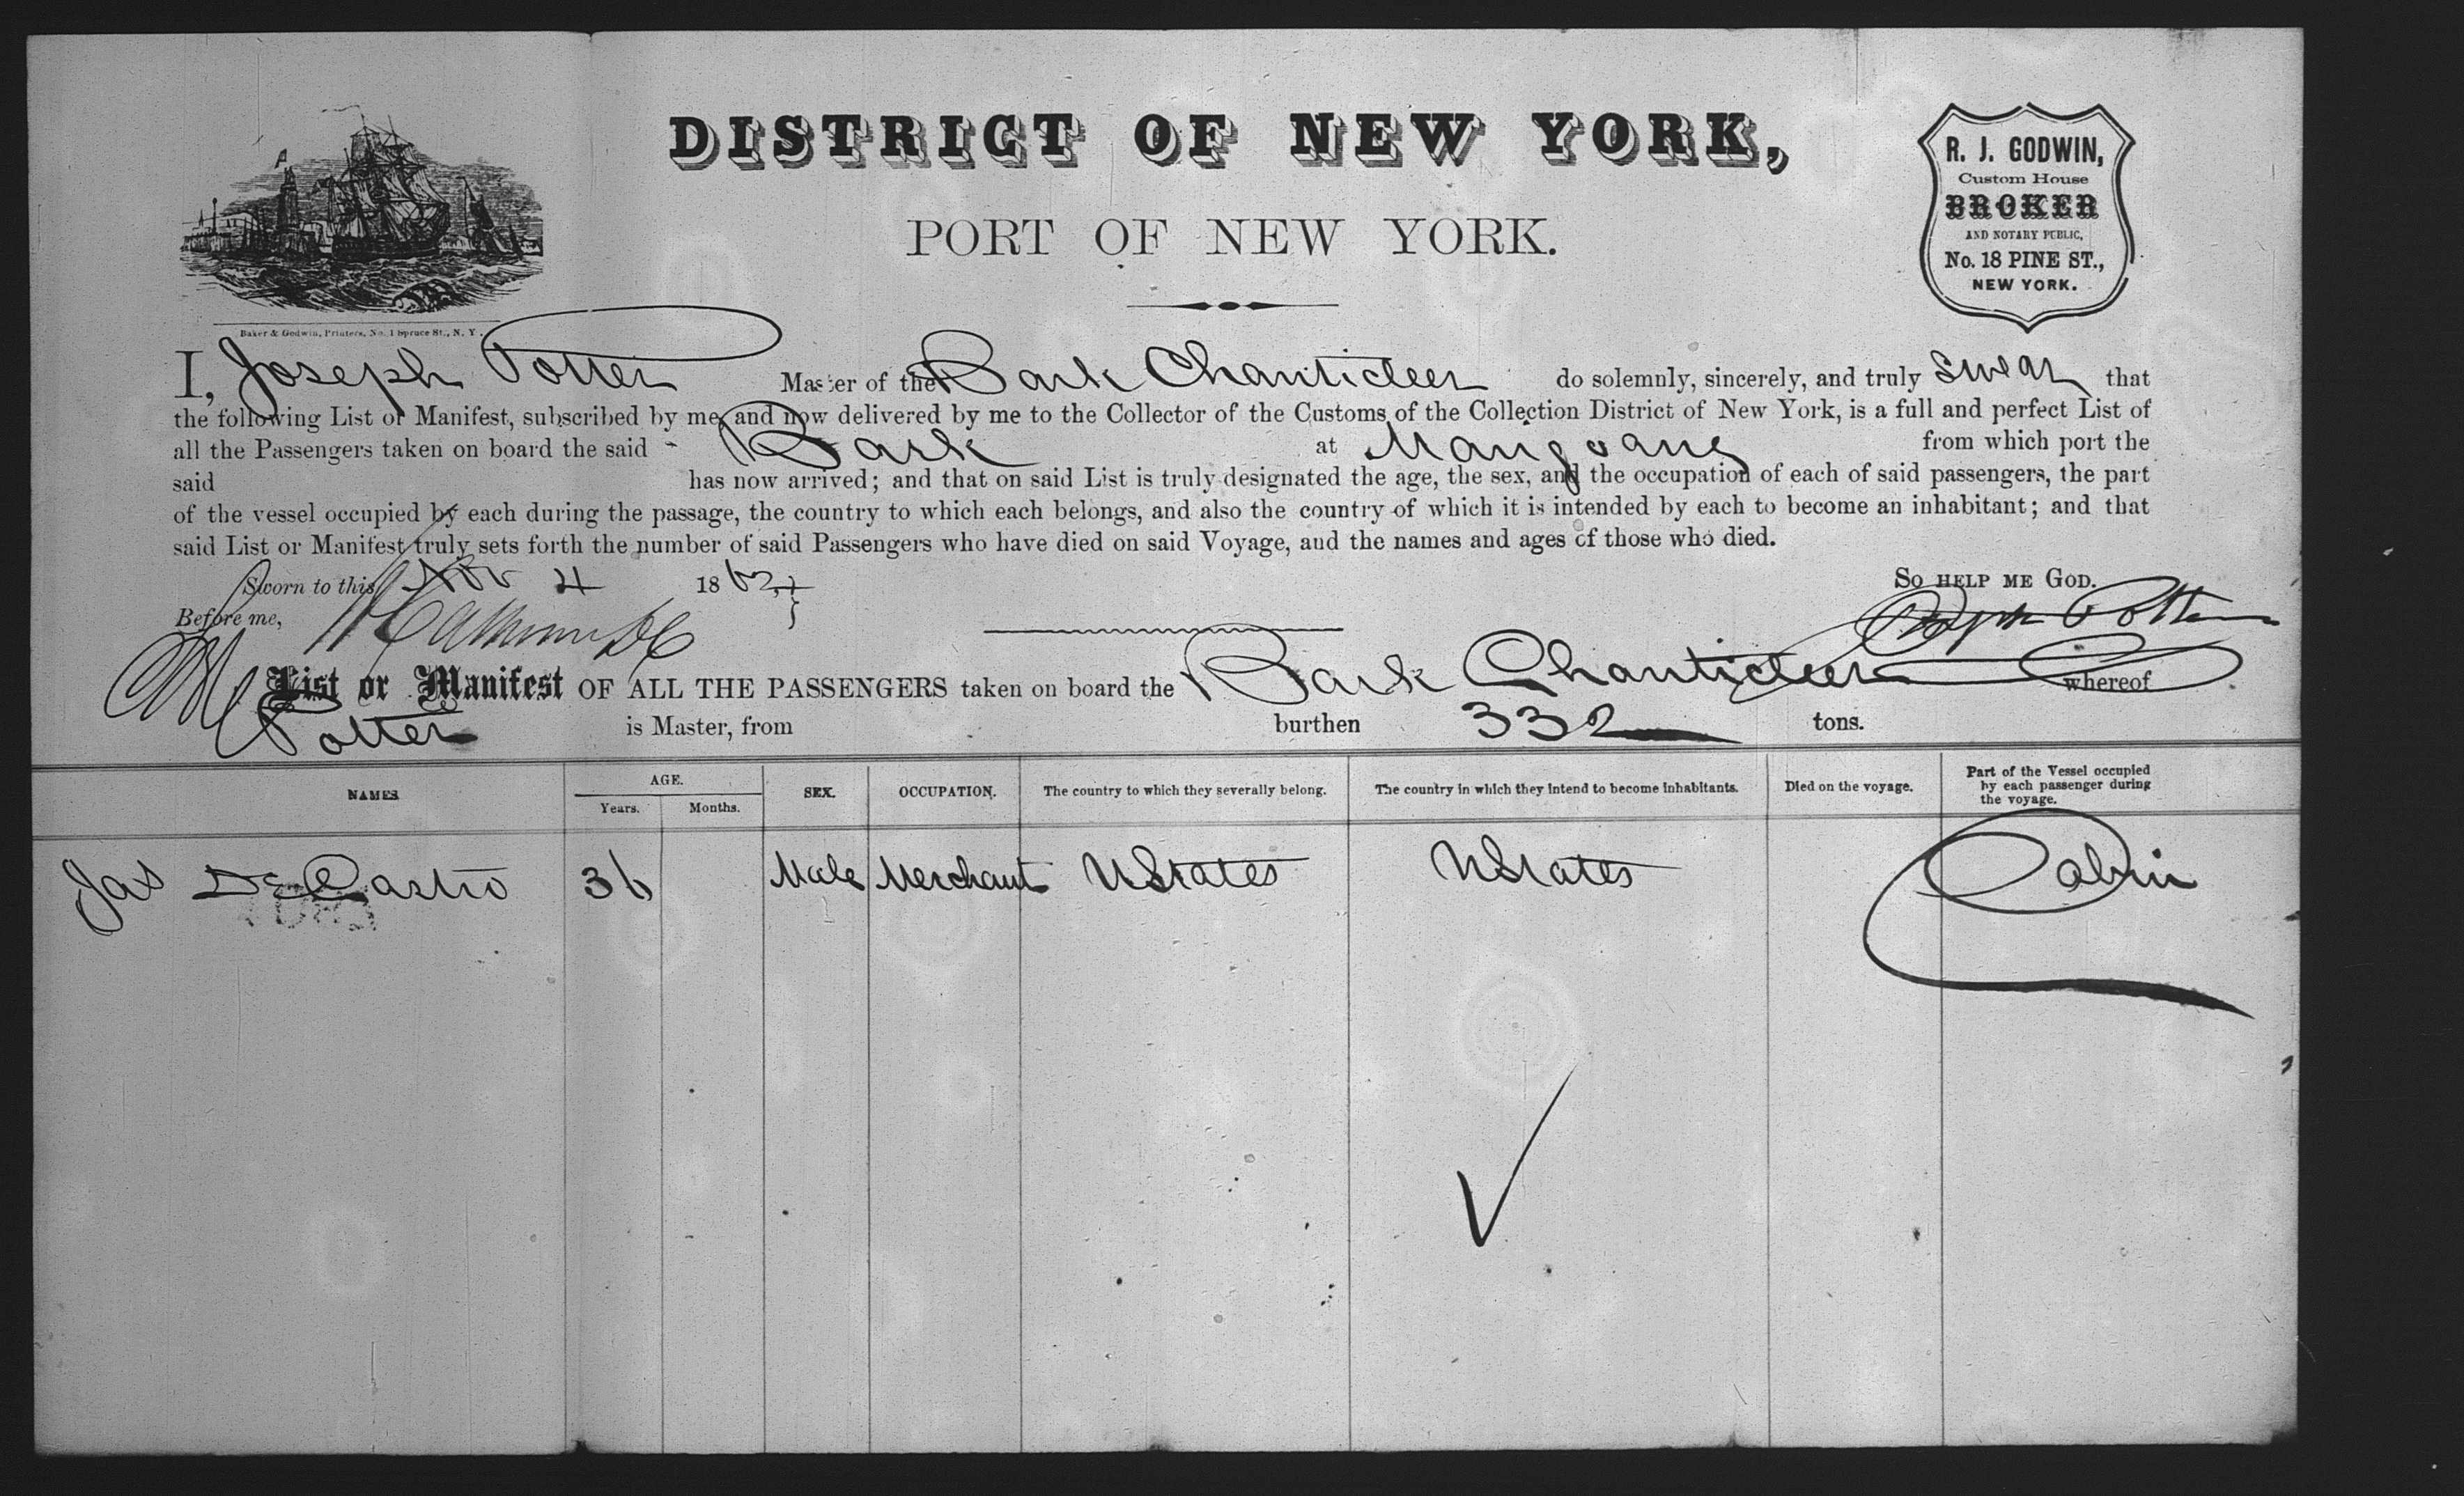 DISTRICT OF NEW YORK,
PORT OF NEW YORK.
R. J. GODWIN,
Custom House
BROKER
AND NOTARY PUBLIC,
No. 18 PINE ST.,
NEW YORK.
Baker & Godwin, Printers, No. 1 Spruce St., N. Y.
I, Joseph Potter Master of the Bark Chanticleer do solemnly, sincerely, and truly swear that
the following List or Manifest, subscribed by me, and now delivered by me to the Collector of the Customs of the Collection District of New York, is a full and perfect List of
all the Passengers taken on board the said Bark at from which port the
said has now arrived; and that on said List is truly designated the age, the sex, and the occupation of each of said passengers, the part
of the vessel occupied by each during the passage, the country to which each belongs, and also the country of which it is intended by each to become an inhabitant; and that
said List or Manifest truly sets forth the number of said Passengers who have died on said Voyage, and the names and ages of those who died.
Sworn to this Nov 4 1862 So HELP ME GOD.
Before me, Joseph Potter
List or Manifest OF ALL THE PASSENGERS taken on board the Bark Chanticleer whereof
Potter is Master, from burthen 332 tons.
NAMES AGE. Years. Months. SEX. OCCUPATION. The country to which they severally belong. The country in which they intend to become inhabitants. Died on the voyage. Part of the Vessel occupied by each passenger during the voyage.
Jas De Castro 36 Male Merchant UStates UStates Cabin